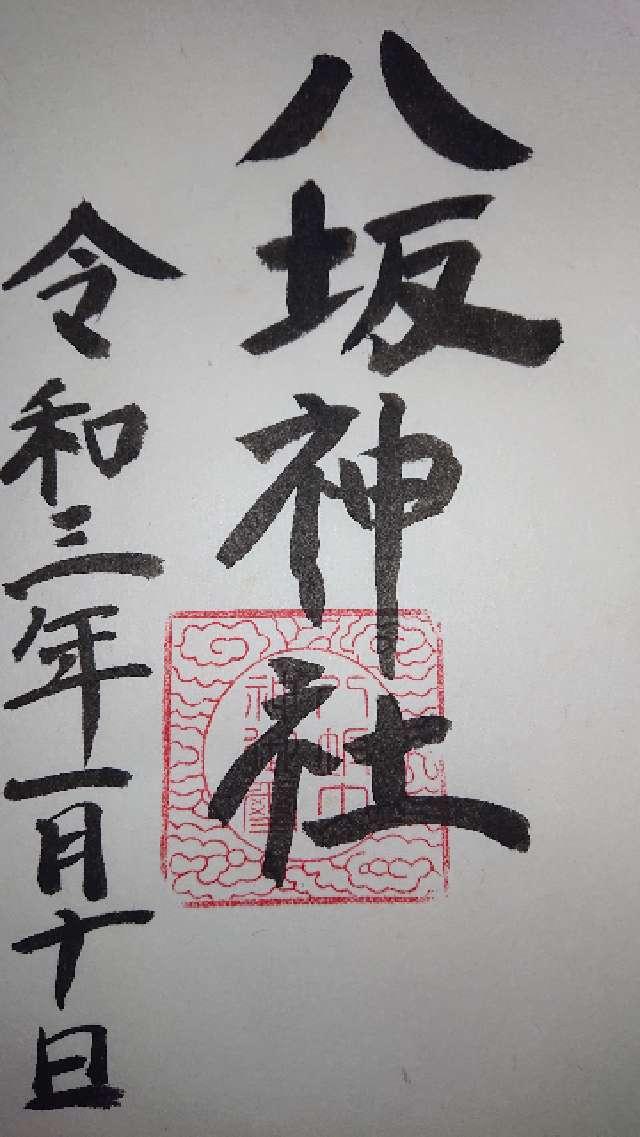 八坂神社
令和三年一月十日